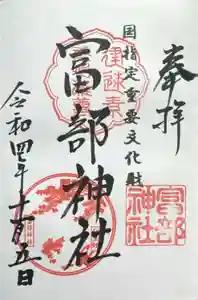 奉拝
国指定重要文化財
富部神社
令和四年十一月五日
富部
神社